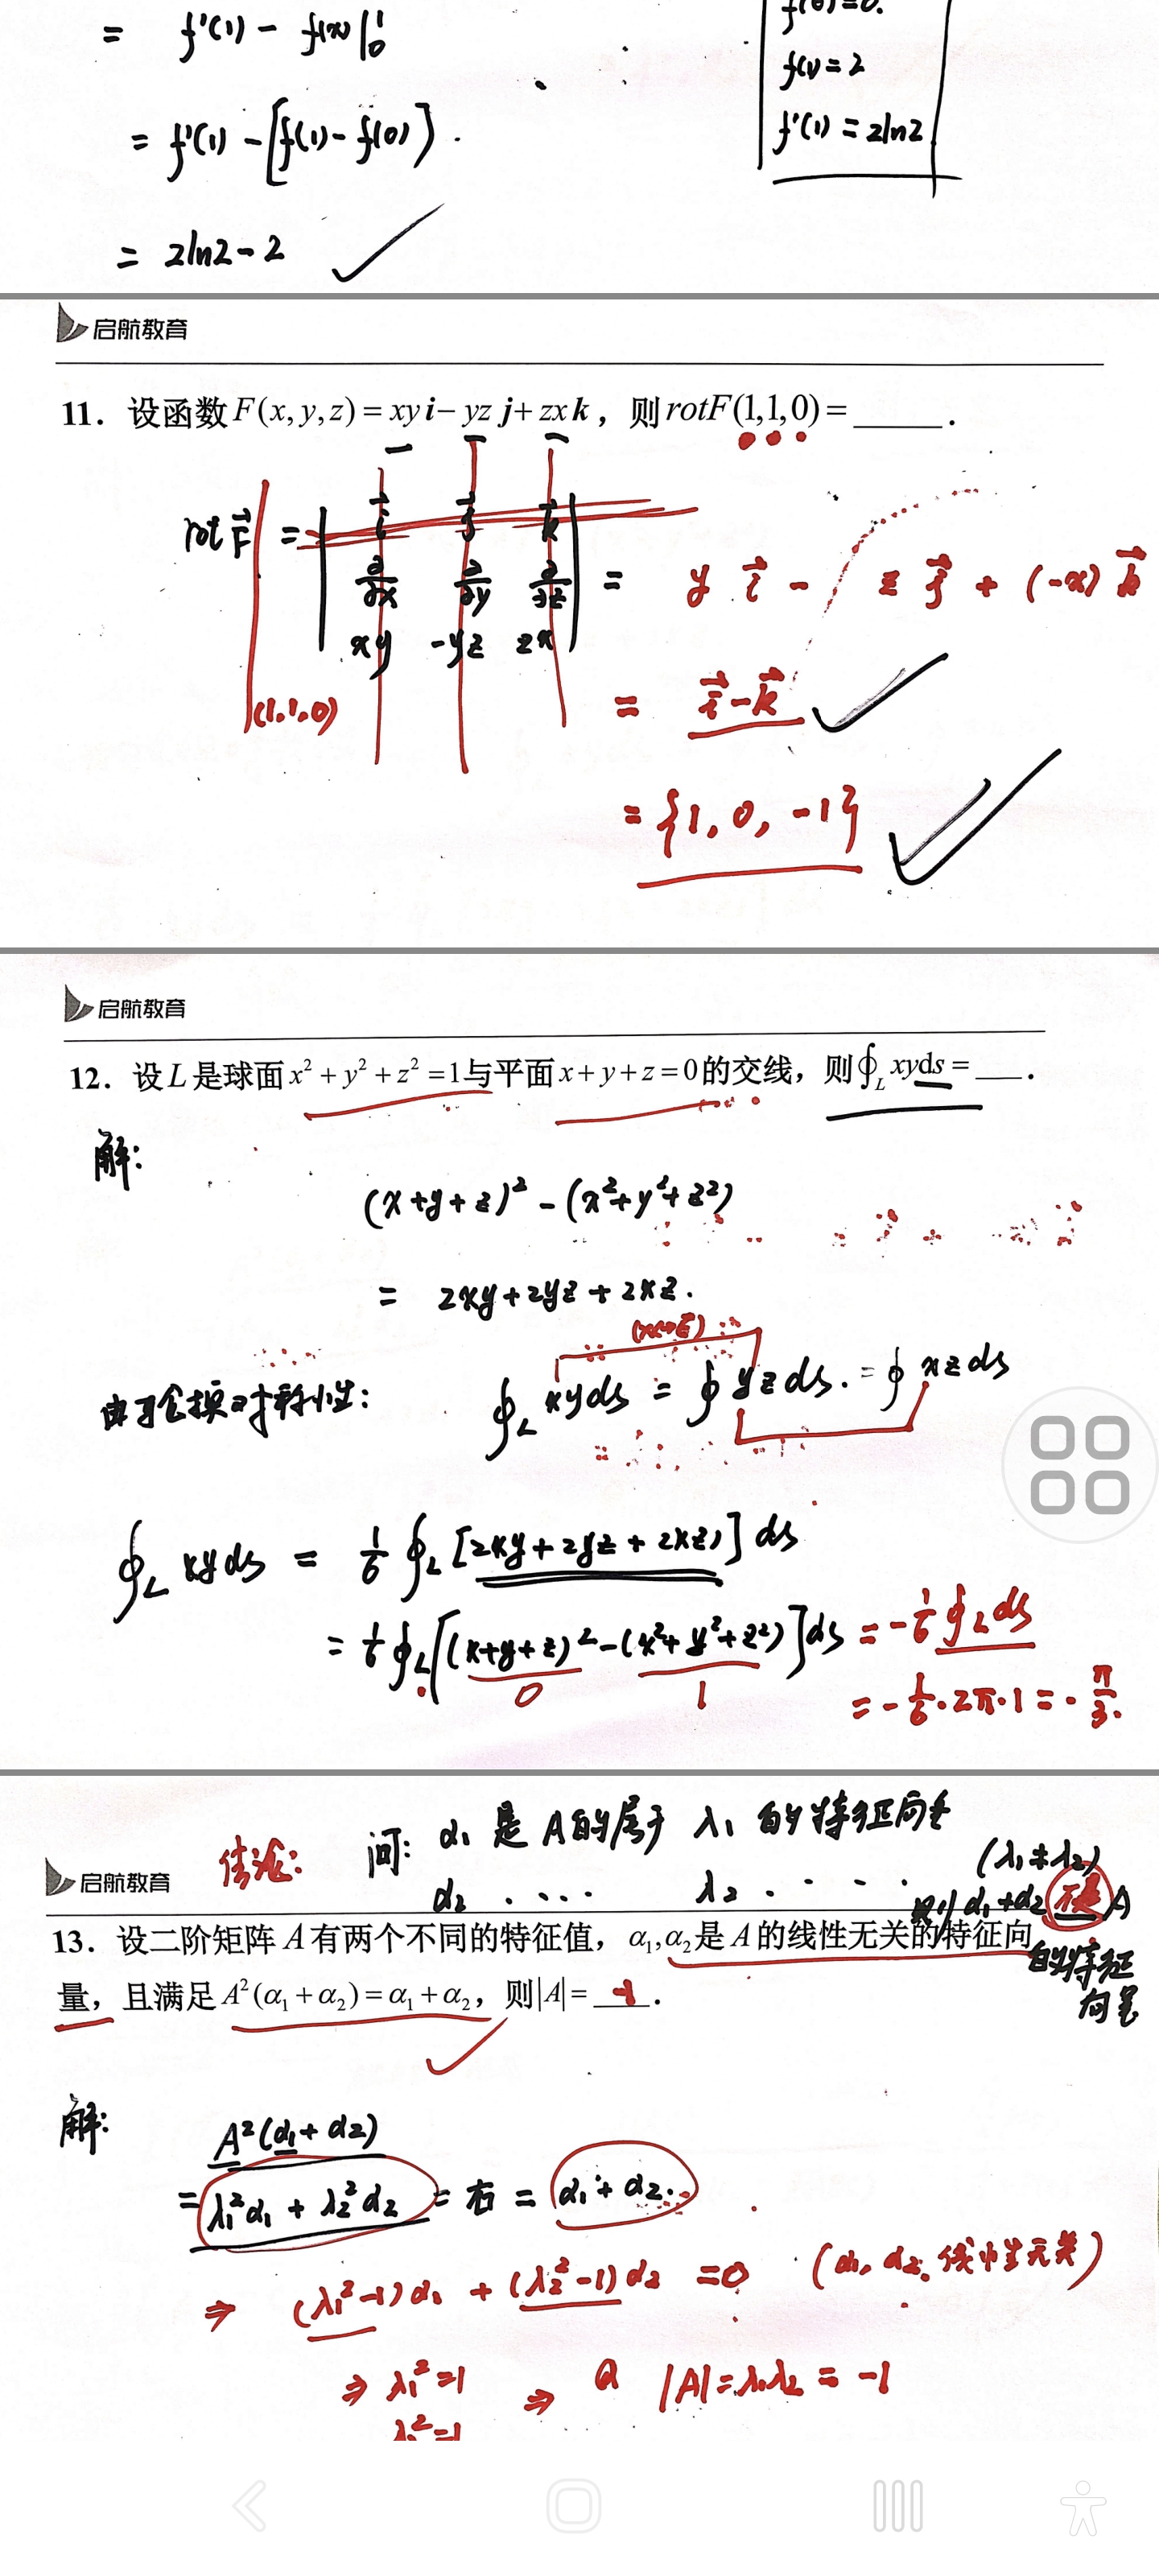 = f'(1) - f(x)|₀¹
f(0)=0.
f(1)=2
= f'(1) - [f(1) - f(0)].
f'(1) = 2ln2
= 2ln2 - 2
启航教育
11. 设函数 F(x, y, z) = xy i − yz j + zx k，则 rotF(1,1,0) = ____.
rot F⃗ |(1,1,0) = | i⃗ j⃗ k⃗ |
| ∂/∂x ∂/∂y ∂/∂z | = y i⃗ - z j⃗ + (-x) k⃗
| xy -yz zx |
= i⃗ - k⃗
= {1, 0, -1}
启航教育
12. 设 L 是球面 x² + y² + z² = 1 与平面 x + y + z = 0 的交线，则 ∮_L xyds = ___.
解:
(x+y+z)² - (x²+y²+z²)
= 2xy + 2yz + 2xz.
由可轮换对称性: ∮_L xyds = ∮ yzds. = ∮ xzds
∮_L xyds = 1/6 ∮_L [2xy + 2yz + 2xz)] ds
= 1/6 ∮_L [(x+y+z)² - (x²+y²+z²)] ds = -1/6 ∮_L ds
0 1
= -1/6 · 2π · 1 = - π/3.
结论: 问: α₁ 是 A的属于 λ₁ 的特征向量
(λ₁≠λ₂)
启航教育
α₂ . . . . λ₂ . . . . 则 α₁+α₂ 不是 A
的特征
向量
13. 设二阶矩阵 A 有两个不同的特征值，α₁, α₂ 是 A 的线性无关的特征向
量，且满足 A²(α₁ + α₂) = α₁ + α₂，则 |A| = -1.
解:
A²(α₁ + α₂)
= λ₁²α₁ + λ₂²α₂ = 右 = α₁ + α₂.
⇒ (λ₁²-1)α₁ + (λ₂²-1)α₂ = 0 (α₁, α₂ 线性无关)
⇒ λ₁²=1 ⇒ |A| = λ₁λ₂ = -1
λ₂²=1